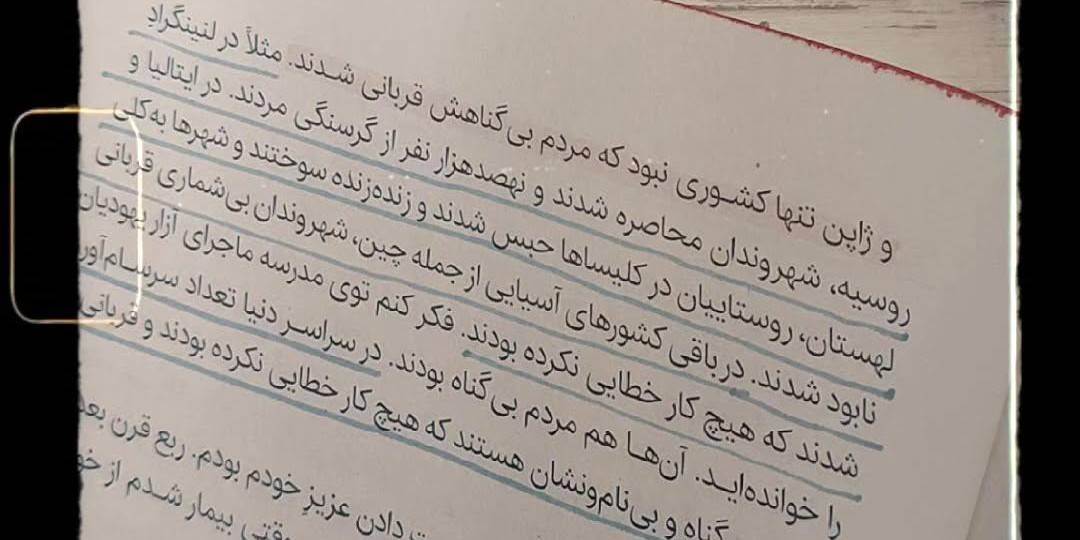 و ژاپن تنها کشوری نبود که مردم بی‌گناهش قربانی شدند. مثلاً در لنینگرادِ
روسیه، شهروندان محاصره شدند و نهصدهزار نفر از گرسنگی مردند. در ایتالیا و
لهستان، روستاییان در کلیساها حبس شدند و زنده‌زنده سوختند و شهرها به‌کلی
نابود شدند. در باقی کشورهای آسیایی از جمله چین، شهروندان بی‌شماری قربانی
شدند که هیچ کار خطایی نکرده بودند. فکر کنم توی مدرسه ماجرای آزار یهودیان
را خوانده‌اید. آن‌ها هم مردم بی‌گناه بودند. در سراسر دنیا تعداد سرسام‌آور
گناه و بی‌نام‌ونشان هستند که هیچ کار خطایی نکرده بودند و قربانی
دادن عزیزِ خودم بودم. ربع قرن بعد
وقتی بیمار شدم از